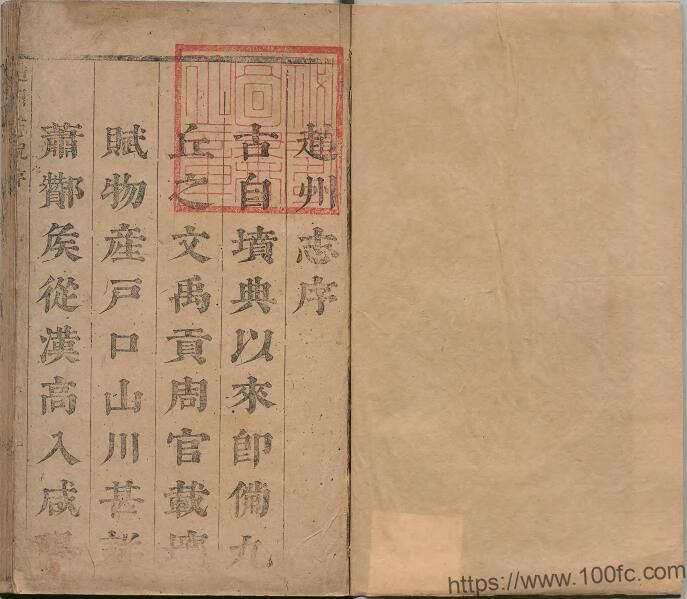 趙州志序
古自墳典以來即備九
丘之文禹貢周官載
賦物產戸口山川甚
蕭酇矦從漢高入咸陽
https://www.100fc.com